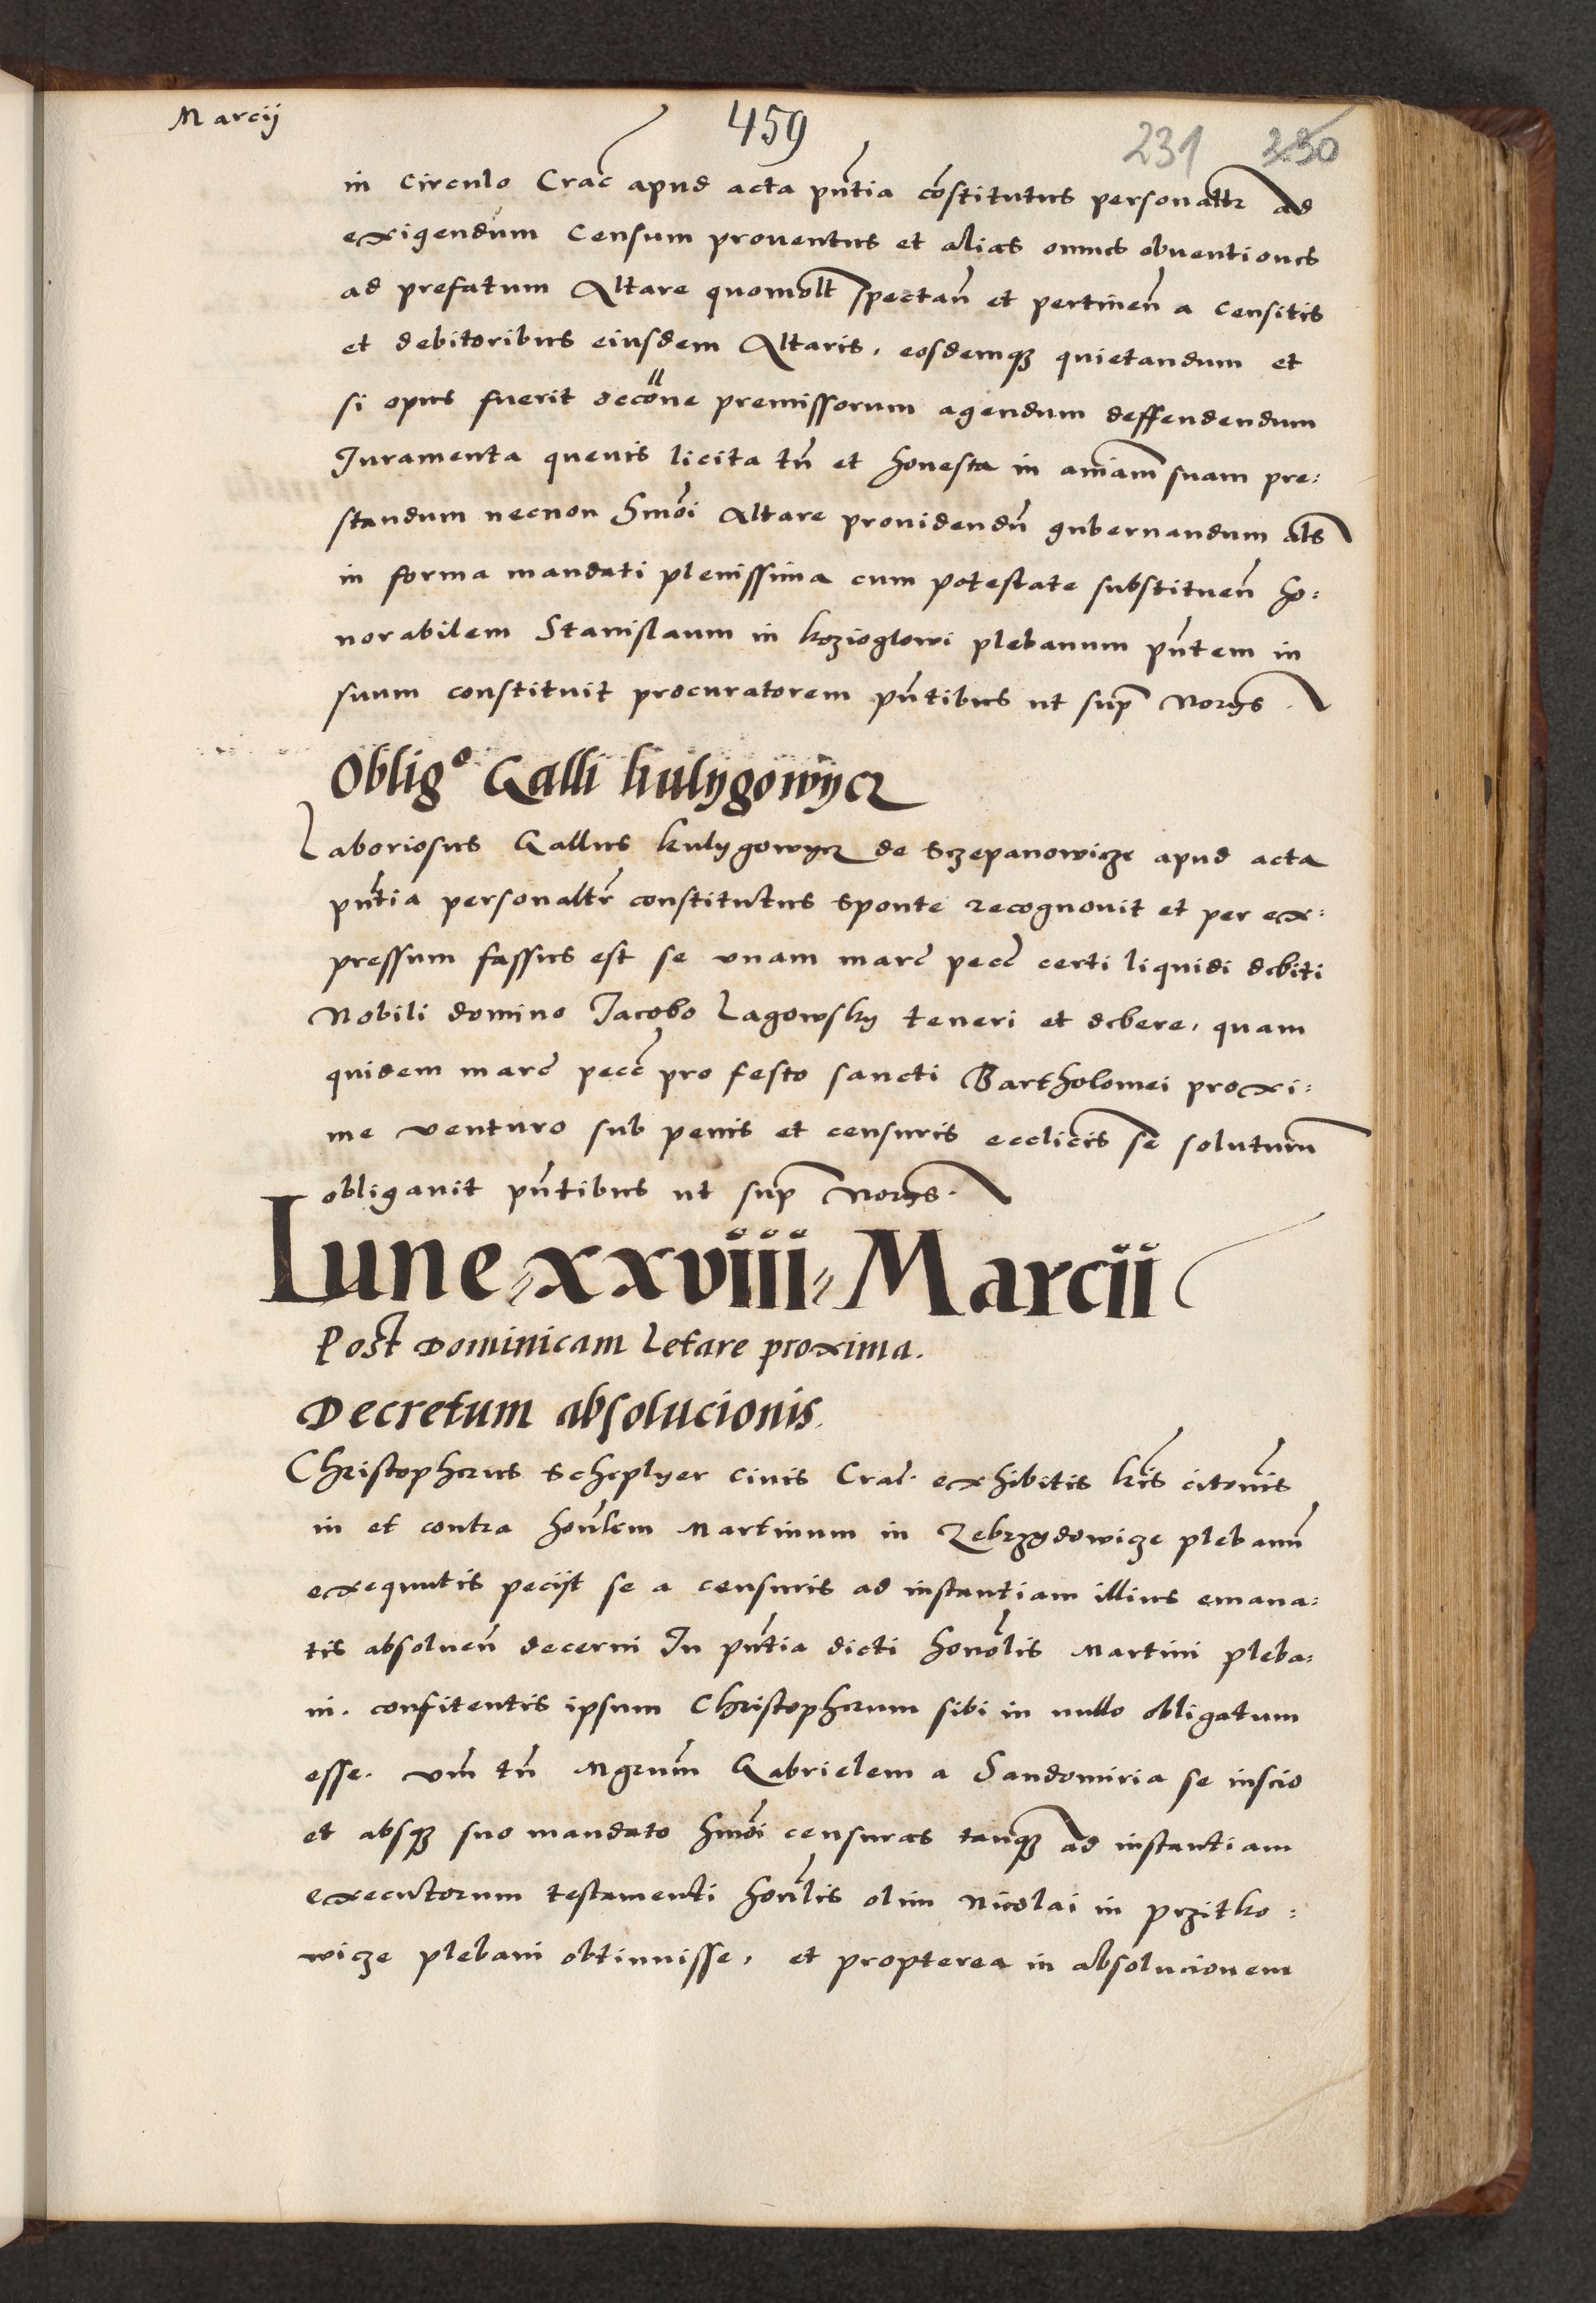 Marcij
459
231 230
in Circulo Crac̃ apud acta pñtia cõstitutus personaltr ad
exigendum Censum proventus et alias omnes obventiones
ad prefatum Altare quomolt spectañ et pertineñ a censitis
et debitoribus eiusdem Altaris, eosdemqȝ quietandum et
si opus fuerit occõne premissorum agendum deffendendum
Juramenta quevis licita tñ et honesta in aniam̃ suam pre:
standum necnon hmõi Altare providendũ gubernandum als
in forma mandati plenissima cum potestate substitueñ ho:
norabilem Stanislaum in kozioglowi plebanum pñtem in
suum constituit procuratorem pñtibus ut sup̃ Norijs
Obligo Galli kulygowycz
Laboriosus Gallus kulygowycz de Sczepanowicze apud acta
pñtia personaltr̃ constitutus sponte recognovit et per ex:
pressum fassus est se unam marc̃ pecc̃ certi liquidi debiti
Nobili domino Jacobo Lagowsky teneri et debere, quam
quidem marc̃ pecc̃ pro festo sancti Bartholomei proxi:
me venturo sub penis et censuris ecclicis se soluturum̃
obligavit pñtibus ut sup̃ Norijs.
Lune xxviii Marcii
Post Dominicam Letare proxima.
Decretum absolucionis.
Christopherus Scheplyer civis Crac̃. exhibitis lris citonis
in et contra honlem Martinum in Zebrzydowicze plebanũ
exequutis pecijt se a censuris ad instantiam illius emana:
tis absolueñ decerni In pñtia dicti honolis Martini pleba:
ni. confitentis ipsum Christopherum sibi in nullo obligatum
esse. vm̃ tñ Mgrum̃ Gabrielem a Sandomiria se inscio
et absqȝ suo mandato hmõi censuras tanqȝ ad instantiam
executorum testamenti honlis olim Nicolai in przitko:
wicze plebani obtinuisse, et propterea in absolucionem